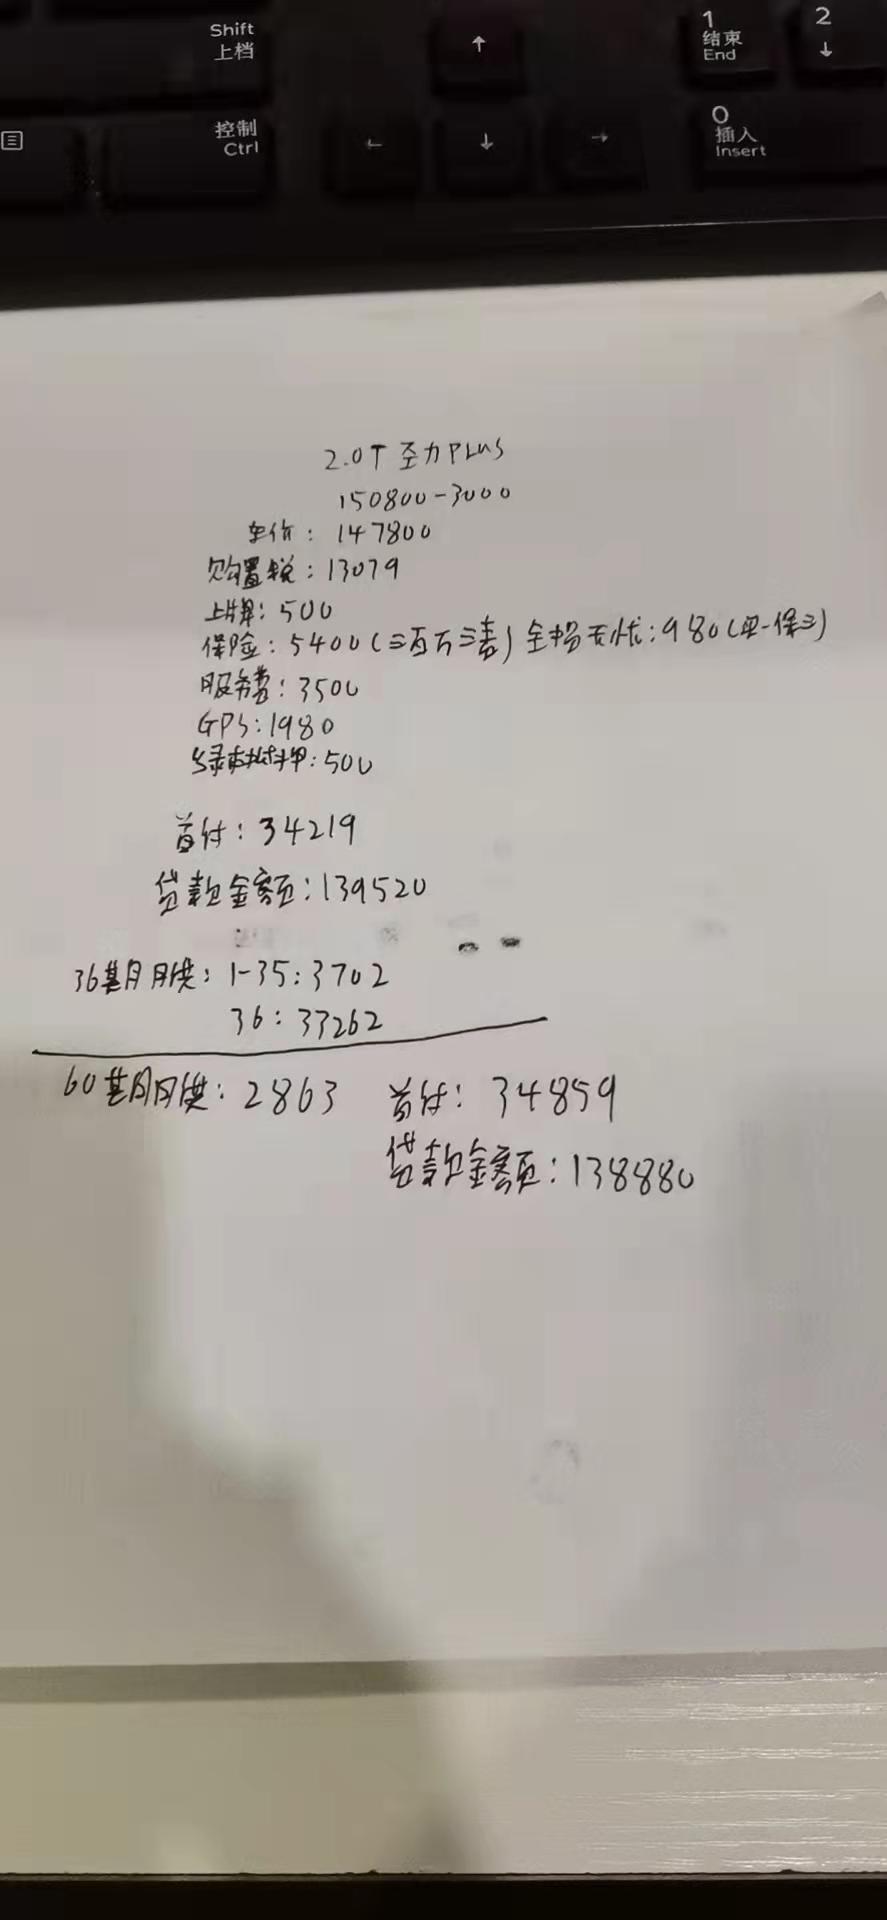 Shift
上档
↑
1
结束
End
2
↓
控制
Ctrl
←
↓
→
0
插入
Insert
2.0T 至力PLUS
150800-3000
车价：147800
购置税：13079
上牌：500
保险：5400(三百万三者) 全损无忧：980(买一保三)
服务费：3500
GPS：1980
绿本抵押：500
首付：34219
贷款金额：139520
36期月供：1-35：3702
36：33262
60期月供：2863 首付：34859
贷款金额：138880